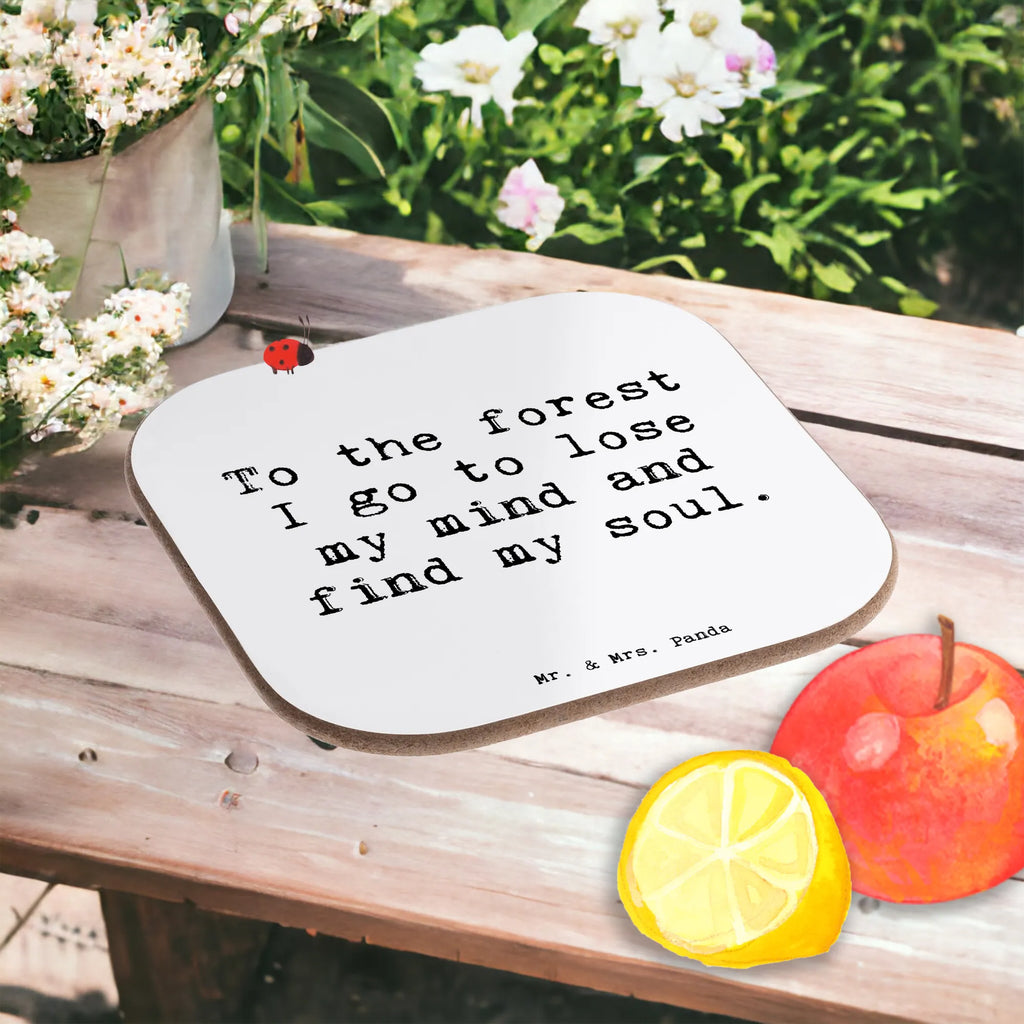 To the forest
I go to lose
my mind and
find my soul.
Mr. & Mrs. Panda